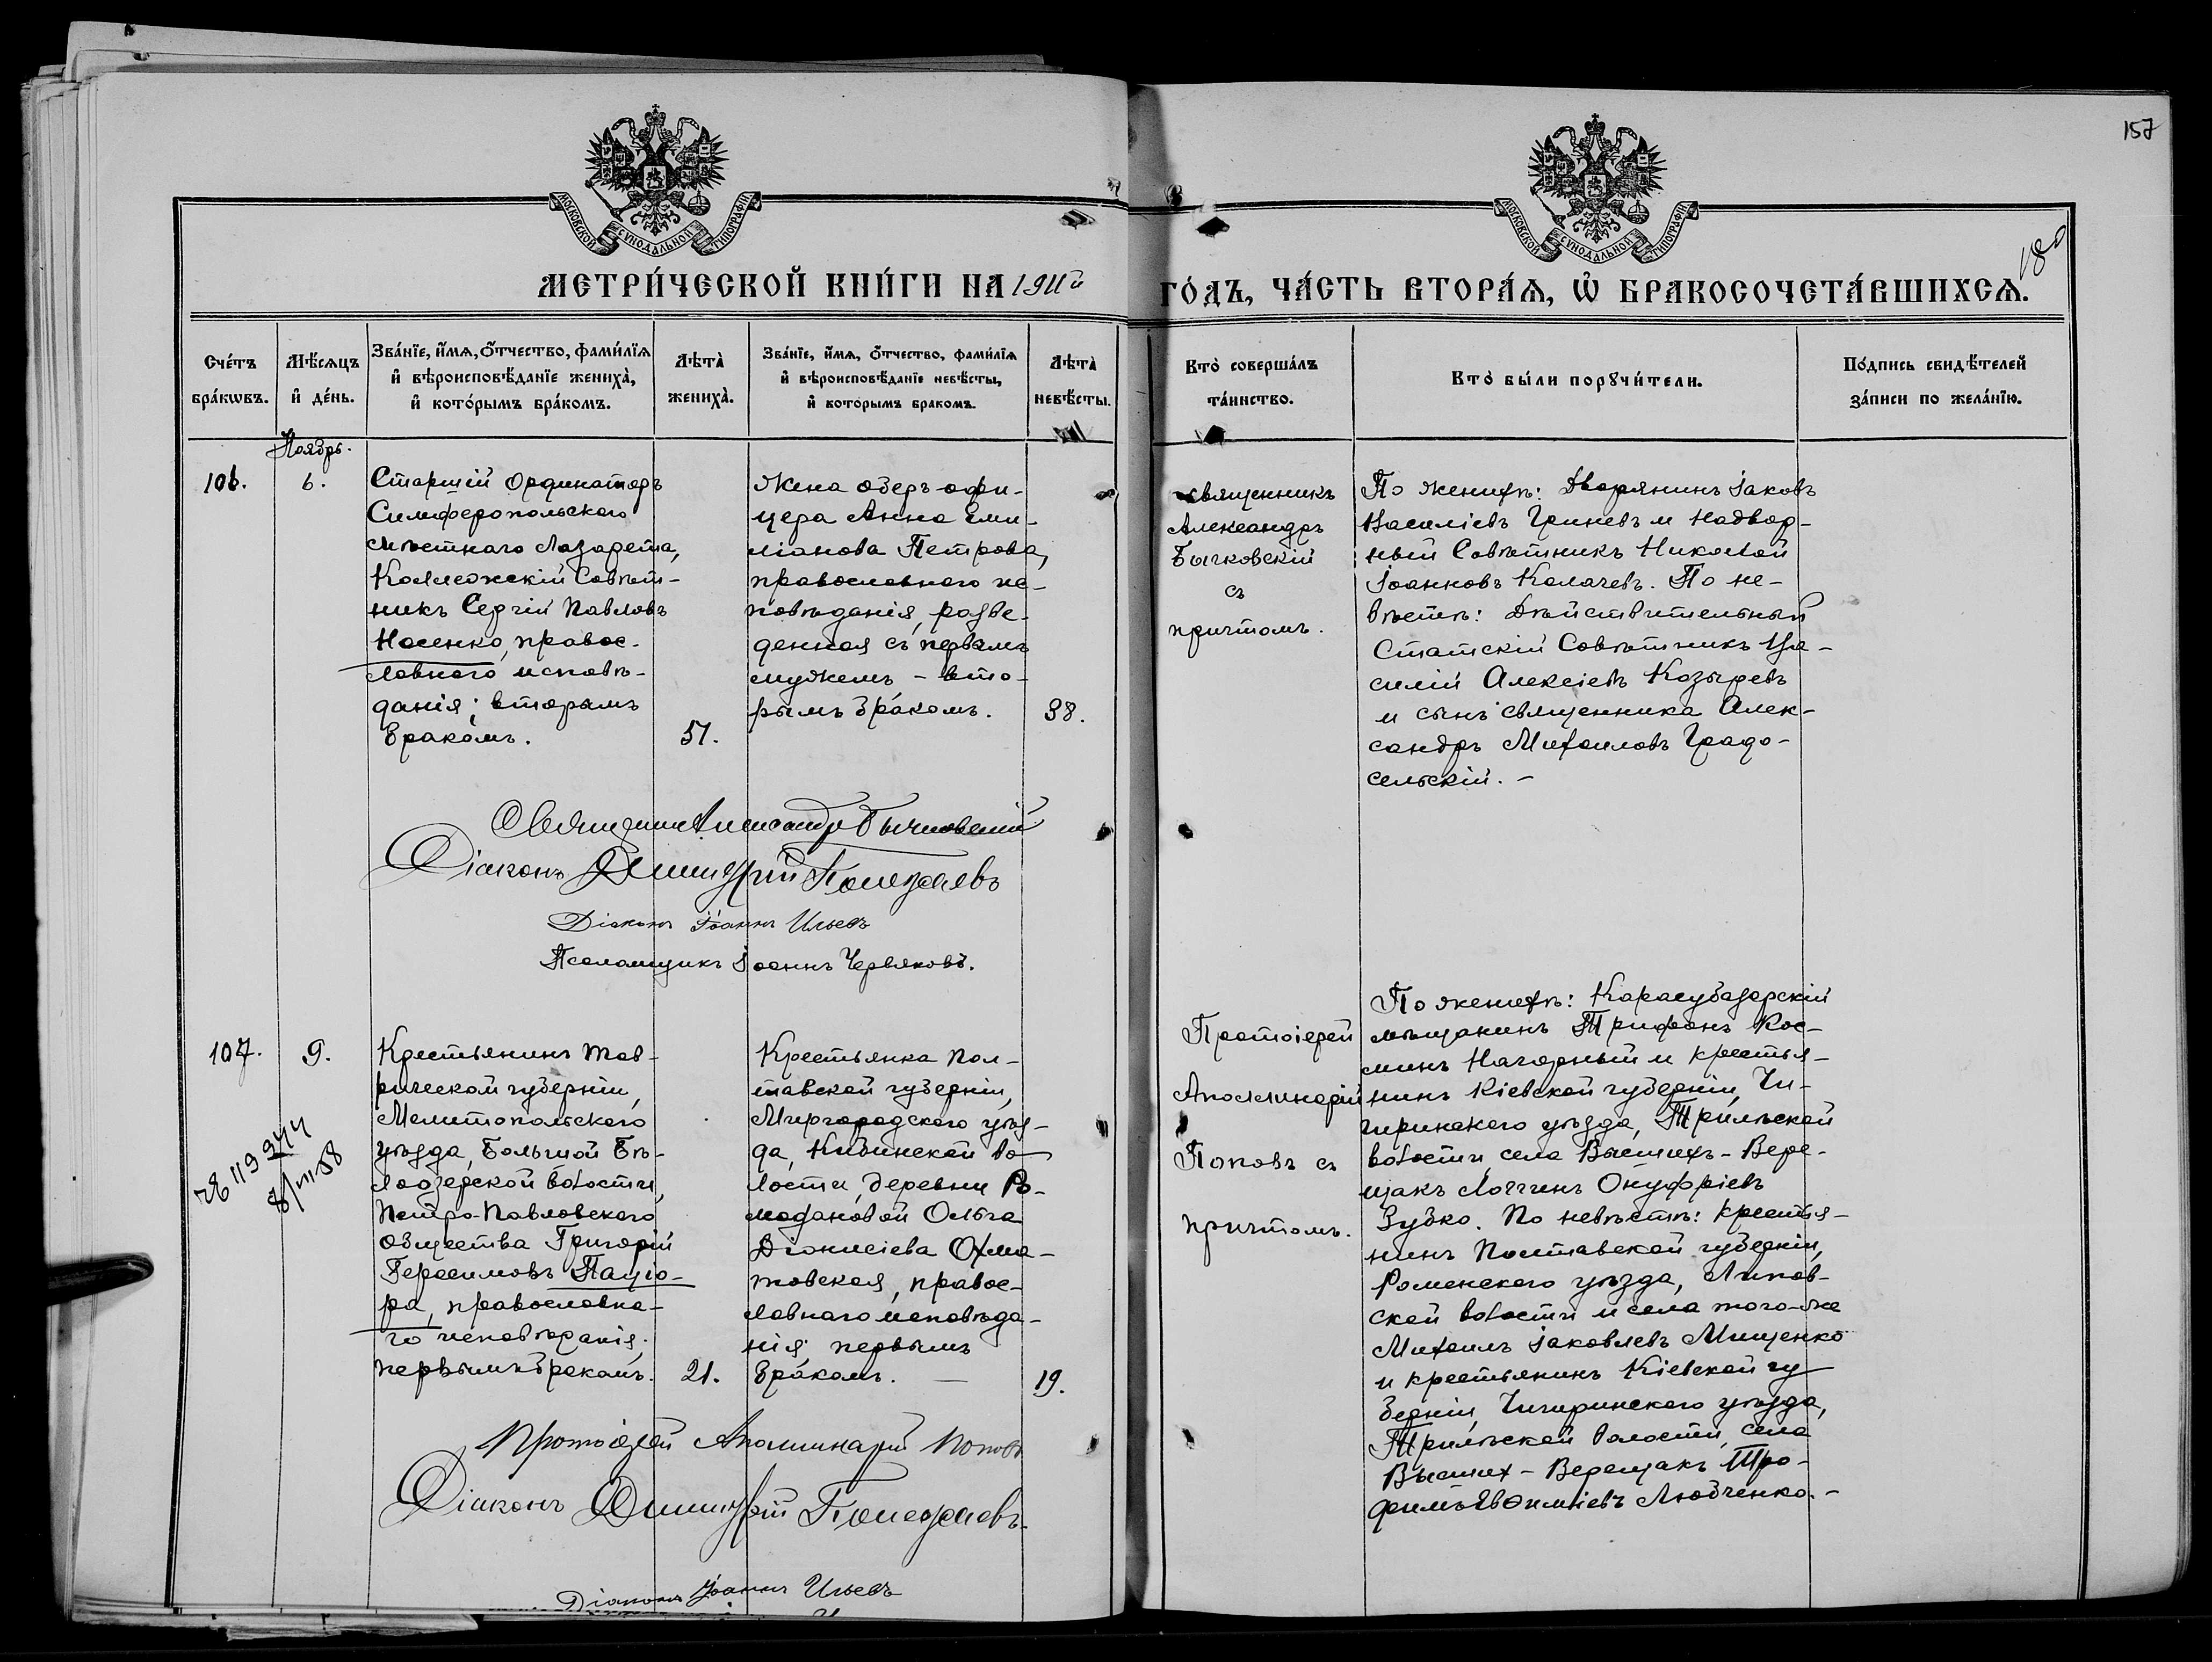 157
180
МОСКОВСКОЙ СУНОДАЛЬНОЙ ТИПОГРАФІИ
МОСКОВСКОЙ СУНОДАЛЬНОЙ ТИПОГРАФІИ
МЕТРИ́ЧЕСКОЙ КНИ́ГИ НА 1911й ГО́ДЪ, ЧА́СТЬ ВТОРА́Я, Ѡ҆ БРАКОСОЧЕТА́ВШИХСЯ.
Сче́тъ
бра́кѡвъ.
Мѣ́сяцъ
и҆ де́нь.
Зва́нїе, и҆́мя, ѻ҆́тчество, фами́лїя
и҆ вѣроисповѣ́данїе жениха̀,
и҆ кото́рымъ бра́комъ.
Лѣта̀
жениха̀.
Зва́нїе, и҆́мя, ѻ҆́тчество, фами́лїя
и҆ вѣроисповѣ́данїе невѣ́сты,
и҆ которымъ бракомъ.
Лѣта̀
невѣ́сты.
Кто̀ соверша́лъ
та́инство.
Кто̀ бы́ли порꙋчи́тели.
По́дпись свидѣ́телей
за́писи по жела́нїю.
Ноябрь.
106.
6.
Старшій Ординаторъ
Симферопольскаго
мѣстнаго Лазарета,
Коллежскій Совѣт-
никъ Сергій Павловъ
Носенко, правос-
лавнаго исповѣ-
данія; вторымъ
бракомъ.
51.
Жена оберъ-офи-
цера Анна Еми-
ліанова Петрова,
православнаго ис-
повѣданія, разве-
денная съ первымъ
мужемъ - вто-
рымъ бракомъ.
38.
Священникъ
Александръ
Бычковскій
съ
причтомъ.
По женихѣ: Дворянинъ Іаковъ
Василіевъ Гриневъ и Надвор-
ный Совѣтникъ Николай
Іоанновъ Калачевъ. По не-
вѣстѣ: Дѣйствительный
Статскій Совѣтникъ Ва-
силій Алексіевъ Козыревъ
и сынъ священника Алек-
сандръ Михаиловъ Градо-
сельскій. -
Священникъ Александръ Бычковскій
Діаконъ Димитрій
Діаконъ Іоаннъ Ильевъ
Псаломщикъ Іоаннъ Червяковъ.
107.
9.
чв 119 944
8/VII 58
Крестьянинъ Тав-
рической губерніи,
Мелитопольскаго
уѣзда, Большой Бѣ-
лоозерской волости,
Петро-Павловскаго
общества Григорій
Герасимовъ Паціо-
ра, православна-
го исповѣданія;
первымъ бракомъ.
21.
Крестьянка Пол-
тавской губерніи,
Миргородскаго уѣз-
да, Кибинской во-
лости, деревни Ро-
модановой Ольга
Діонисіева Охма-
товская, правос-
лавнаго исповѣда-
нія; первымъ
бракомъ. —
19.
Протоіерей
Аполлинарій
Поповъ съ
причтомъ.
По женихѣ: Карасубазарскій
мѣщанинъ Трифонъ Кос-
минъ Нагорный и крестья-
нинъ Кіевской губерніи, Чи-
гиринскаго уѣзда, Трилѣской
волости, села Высшихъ-Вере-
щакъ Логгинъ Онуфріевъ
Зубко. По невѣстѣ: крестья-
нинъ Полтавской губерніи,
Роменскаго уѣзда, Липов-
ской волости и села того-же
Михаилъ Іаковлевъ Мищенко
и крестьянинъ Кіевской гу
берніи, Чигиринскаго уѣзда,
Трилѣской волости, села
Высших-Верещакъ Тро-
фимъ Евѳиміевъ Любченко. -
Протоіерей Аполлинарій Поповъ
Діаконъ Димитрій
Діаконъ Іоаннъ Ильевъ